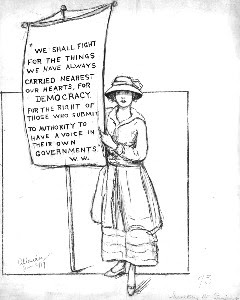 "WE SHALL FIGHT
FOR THE THINGS
WE HAVE ALWAYS
CARRIED NEAREST
OUR HEARTS, FOR
DEMOCRACY,
FOR THE RIGHT OF
THOSE WHO SUBMIT
TO AUTHORITY TO
HAVE A VOICE IN
THEIR OWN
GOVERNMENTS."
W. W.